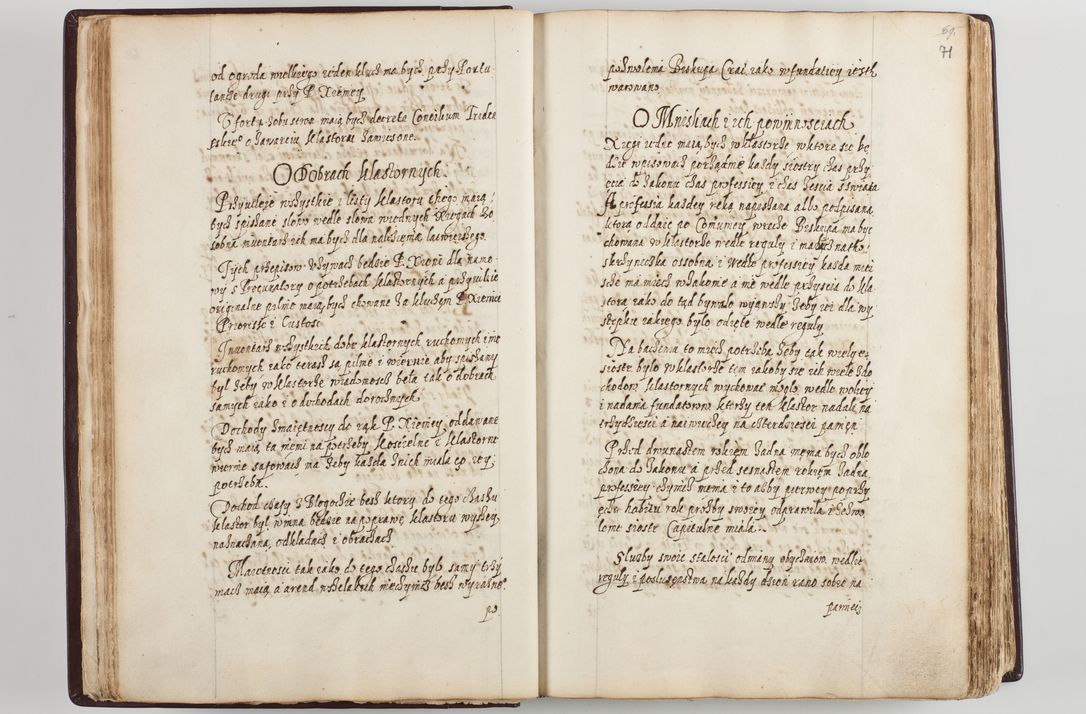 od ogroda wielkiego ieden klucz ma bydz przy Fortu
lance drugi przy P. Xieniey
U forty zobustron maią bydz decreta Concilium Triden
skiego o zawarciu klasztora zawieszone.
O Dobrach klasztornych
Przywileie wszystkie i listy klasztoru tkego maią
bydz spisane słowo wedle słowa w iednych Xięgach
sobna inwentarz ich ma bydz dla nalezienia łacwieyszego.
Tych przepisow używacz bedzie P. Xieni dla namo
wy s Procuratory o potrzebach klasztornych a przywileie
originalne pilnie maią bydz chowane za kluczem P. Xieni
Priorisse i Custos
Inwentarz wszystkich dobr klasztornych ruchomych i nie
ruchomych iako teraz są pilnie i wiernie aby spisany
był żeby w klasztorze wiadomosc beła tak o dobrach
samych iako i o dochodach dorocznych
Dochody z maiętnosci do rąk P. Xieniey oddawane
bydz maią, ta ieni na potrzeby koscielne i klasztorne
wiernie safowacz ma żeby każda z nich miała co iey
potrzeba.
Dochod czasy z Błogocic besz ktory do tego czasu
klasztor był, winna bedzie na poprawę klasztoru wyszey
naznaczoną, odkładacz i obraczacz
Maiętnosci tak iako do tego czasu było samy trzy
macz maią a arend wszelakich niechynicz besz wyraźne°
po
69.
71
pozwolenia Biskupa Crac iako w fundaciey iesth
warowano
O Mniszkach i ich powinnosciach
Xięgi iedne maią bydz w klasztorze w ktore sie bę
dzie wpisowacz porządnie każdy siostry czas przy
ięcia do Zakonu czas professiey i czas ześcia z swiata
A professia kazdey ręką napisana albo podpisana
ktorą oddaie po Comuniey w ręce Biskupa ma byc
chowana w klasztorze wedle reguły i ma bydz na to
skrzyneczka ossobna i wedle professiey każda miei
sce ma miecz w Zakonie a nie wedle przyscia do kla
stora iako do tąd bywało wyiąwszy żeby iei dla wy
stepku iakiego było odięte wedle reguły
Na baczeniu to miecz potrzeba żeby tak wiely
siostr było w klasztorze tem iakoby sie ich wiele z do
chodow klasztornych wychować mogło wedle woley
i nadania fundatorow ktorzy ten klasztor nadali na
trzydziesci a naiwiecey na czterdziesci panien
Przed dwunastem rokiem żadna niema bydz oblo
czona do Zakonu a przed sesnastem rokiem żadna
professiey czynicz niema i to abby pierwey poprzy
ęciu habitu rok prozby swoiey odprawiła i zozwo
lenie siostr Capitulne miała.
Sluzby swoie stałosci odmiany obyczaiow wedle
reguły i posluszenstwa na każdy dzień rano sobie na
pamiei